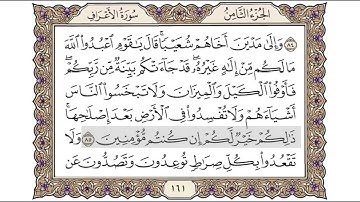 الجزء الثامن
سورة الأعراف
٨٤ وَإِلَىٰ مَدْيَنَ أَخَاهُمْ شُعَيْبًا ۗ قَالَ يَٰقَوْمِ ٱعْبُدُوا۟ ٱللَّهَ
مَا لَكُم مِّنْ إِلَٰهٍ غَيْرُهُۥ ۖ قَدْ جَآءَتْكُم بَيِّنَةٌ مِّن رَّبِّكُمْ ۖ
فَأَوْفُوا۟ ٱلْكَيْلَ وَٱلْمِيزَانَ وَلَا تَبْخَسُوا۟ ٱلنَّاسَ
أَشْيَآءَهُمْ وَلَا تُفْسِدُوا۟ فِى ٱلْأَرْضِ بَعْدَ إِصْلَٰحِهَا ۚ
ذَٰلِكُمْ خَيْرٌ لَّكُمْ إِن كُنتُم مُّؤْمِنِينَ ٨٥ وَلَا
تَقْعُدُوا۟ بِكُلِّ صِرَٰطٍ تُوعِدُونَ وَتَصُدُّونَ عَن
١٦١